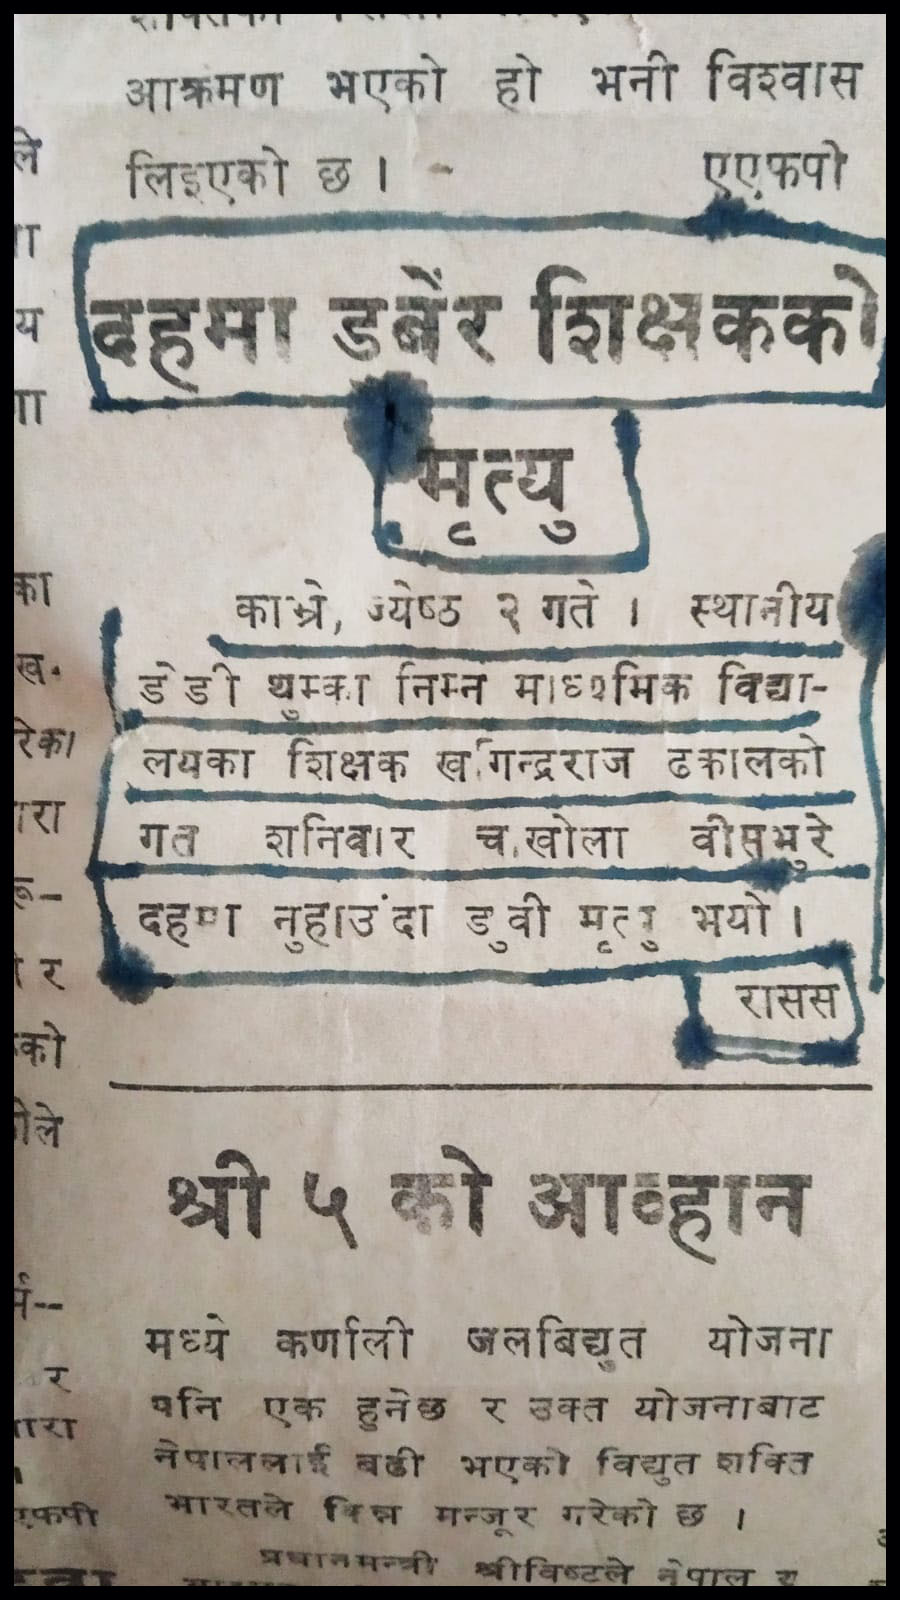 आक्रमण भएको हो भनी विश्वास
लिइएको छ । - एएफपी
दहमा डुबेर शिक्षकको
मृत्यु
काभ्रे, ज्येष्ठ २ गते । स्थानीय
डेडी थुम्का निम्न माध्यमिक विद्या-
लयका शिक्षक खगेन्द्रराज ढकालको
गत शनिवार च.खोला वीसभुरे
दहमा नुहाउंदा डुवी मृत्यु भयो ।
रासस
श्री ५ को आव्हान
मध्ये कर्णाली जलबिद्युत योजना
पनि एक हुनेछ र उक्त योजनाबाट
नेपाललाई बढी भएको विद्युत शक्ति
भारतले किन्न मन्जूर गरेको छ ।
प्रधानमन्त्री श्रीविष्टले नेपाल र